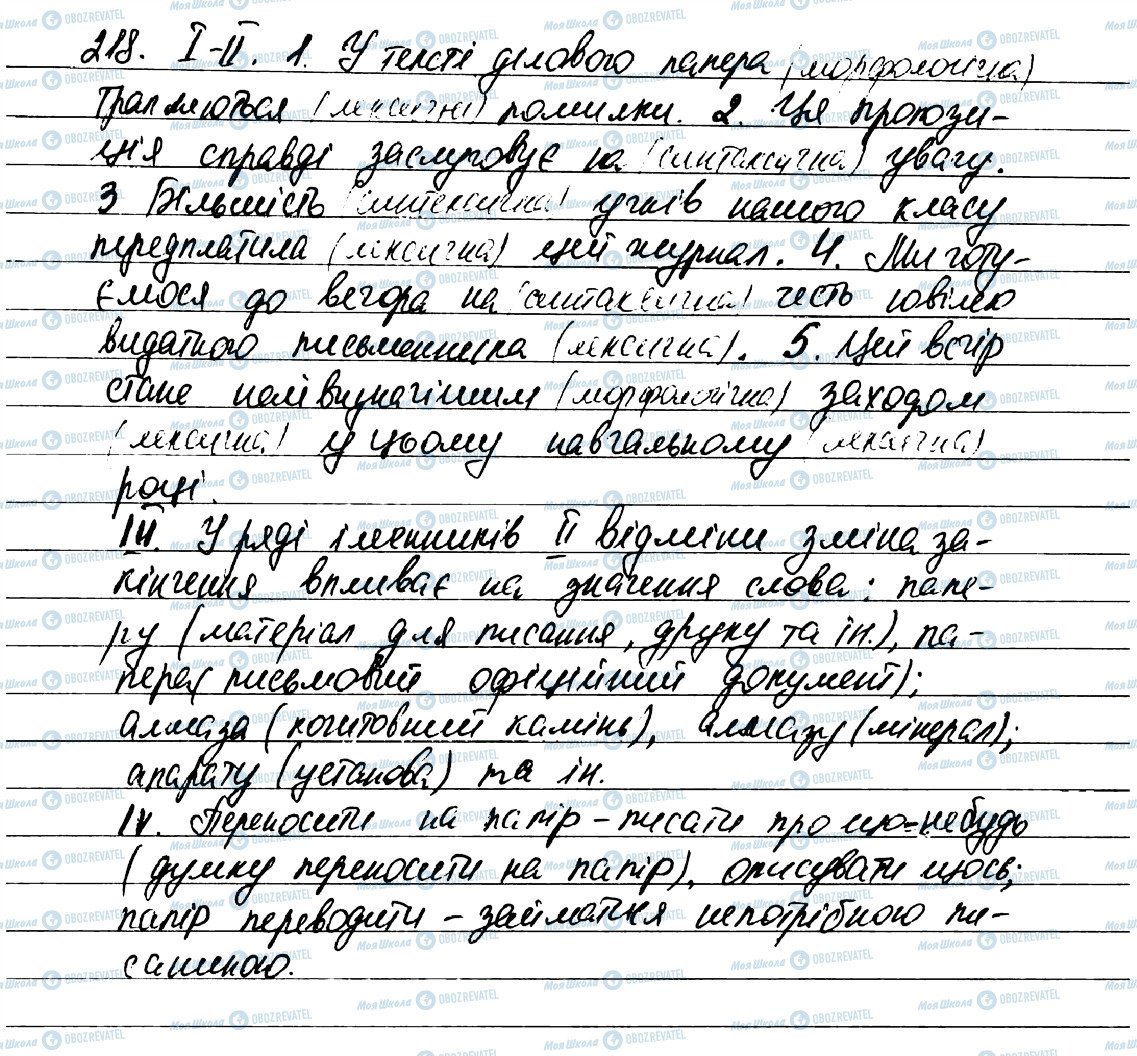 218. I-II. 1. У тексті ділового папера (морфологічна)
трапляються (лексичні) помилки. 2. Ця пропози-
ція справді заслуговує на (синтаксична) увагу.
3 Більшість (синтаксична) учнів нашого класу
передплатила (лексична) цей журнал. 4. Ми готу-
ємося до вечора на (синтаксична) честь ювілею
видатного письменника (лексична). 5. Цей вечір
стане найвизначнішим (морфологічна) заходом
(лексична) у цьому навчальному (лексична)
році.
III. У ряді іменників II відміни зміна за-
кінчення впливає на значення слова: папе-
ру (матеріал для писання, друку та ін.), па-
пера (письмовий офіційний документ);
алмаза (коштовний камінь), алмазу (мінерал);
апарату (установа) та ін.
IV. Переносити на папір – писати про що-небудь
(думку переносити на папір), описувати щось;
папір переводити – займатися непотрібною пи-
саниною.